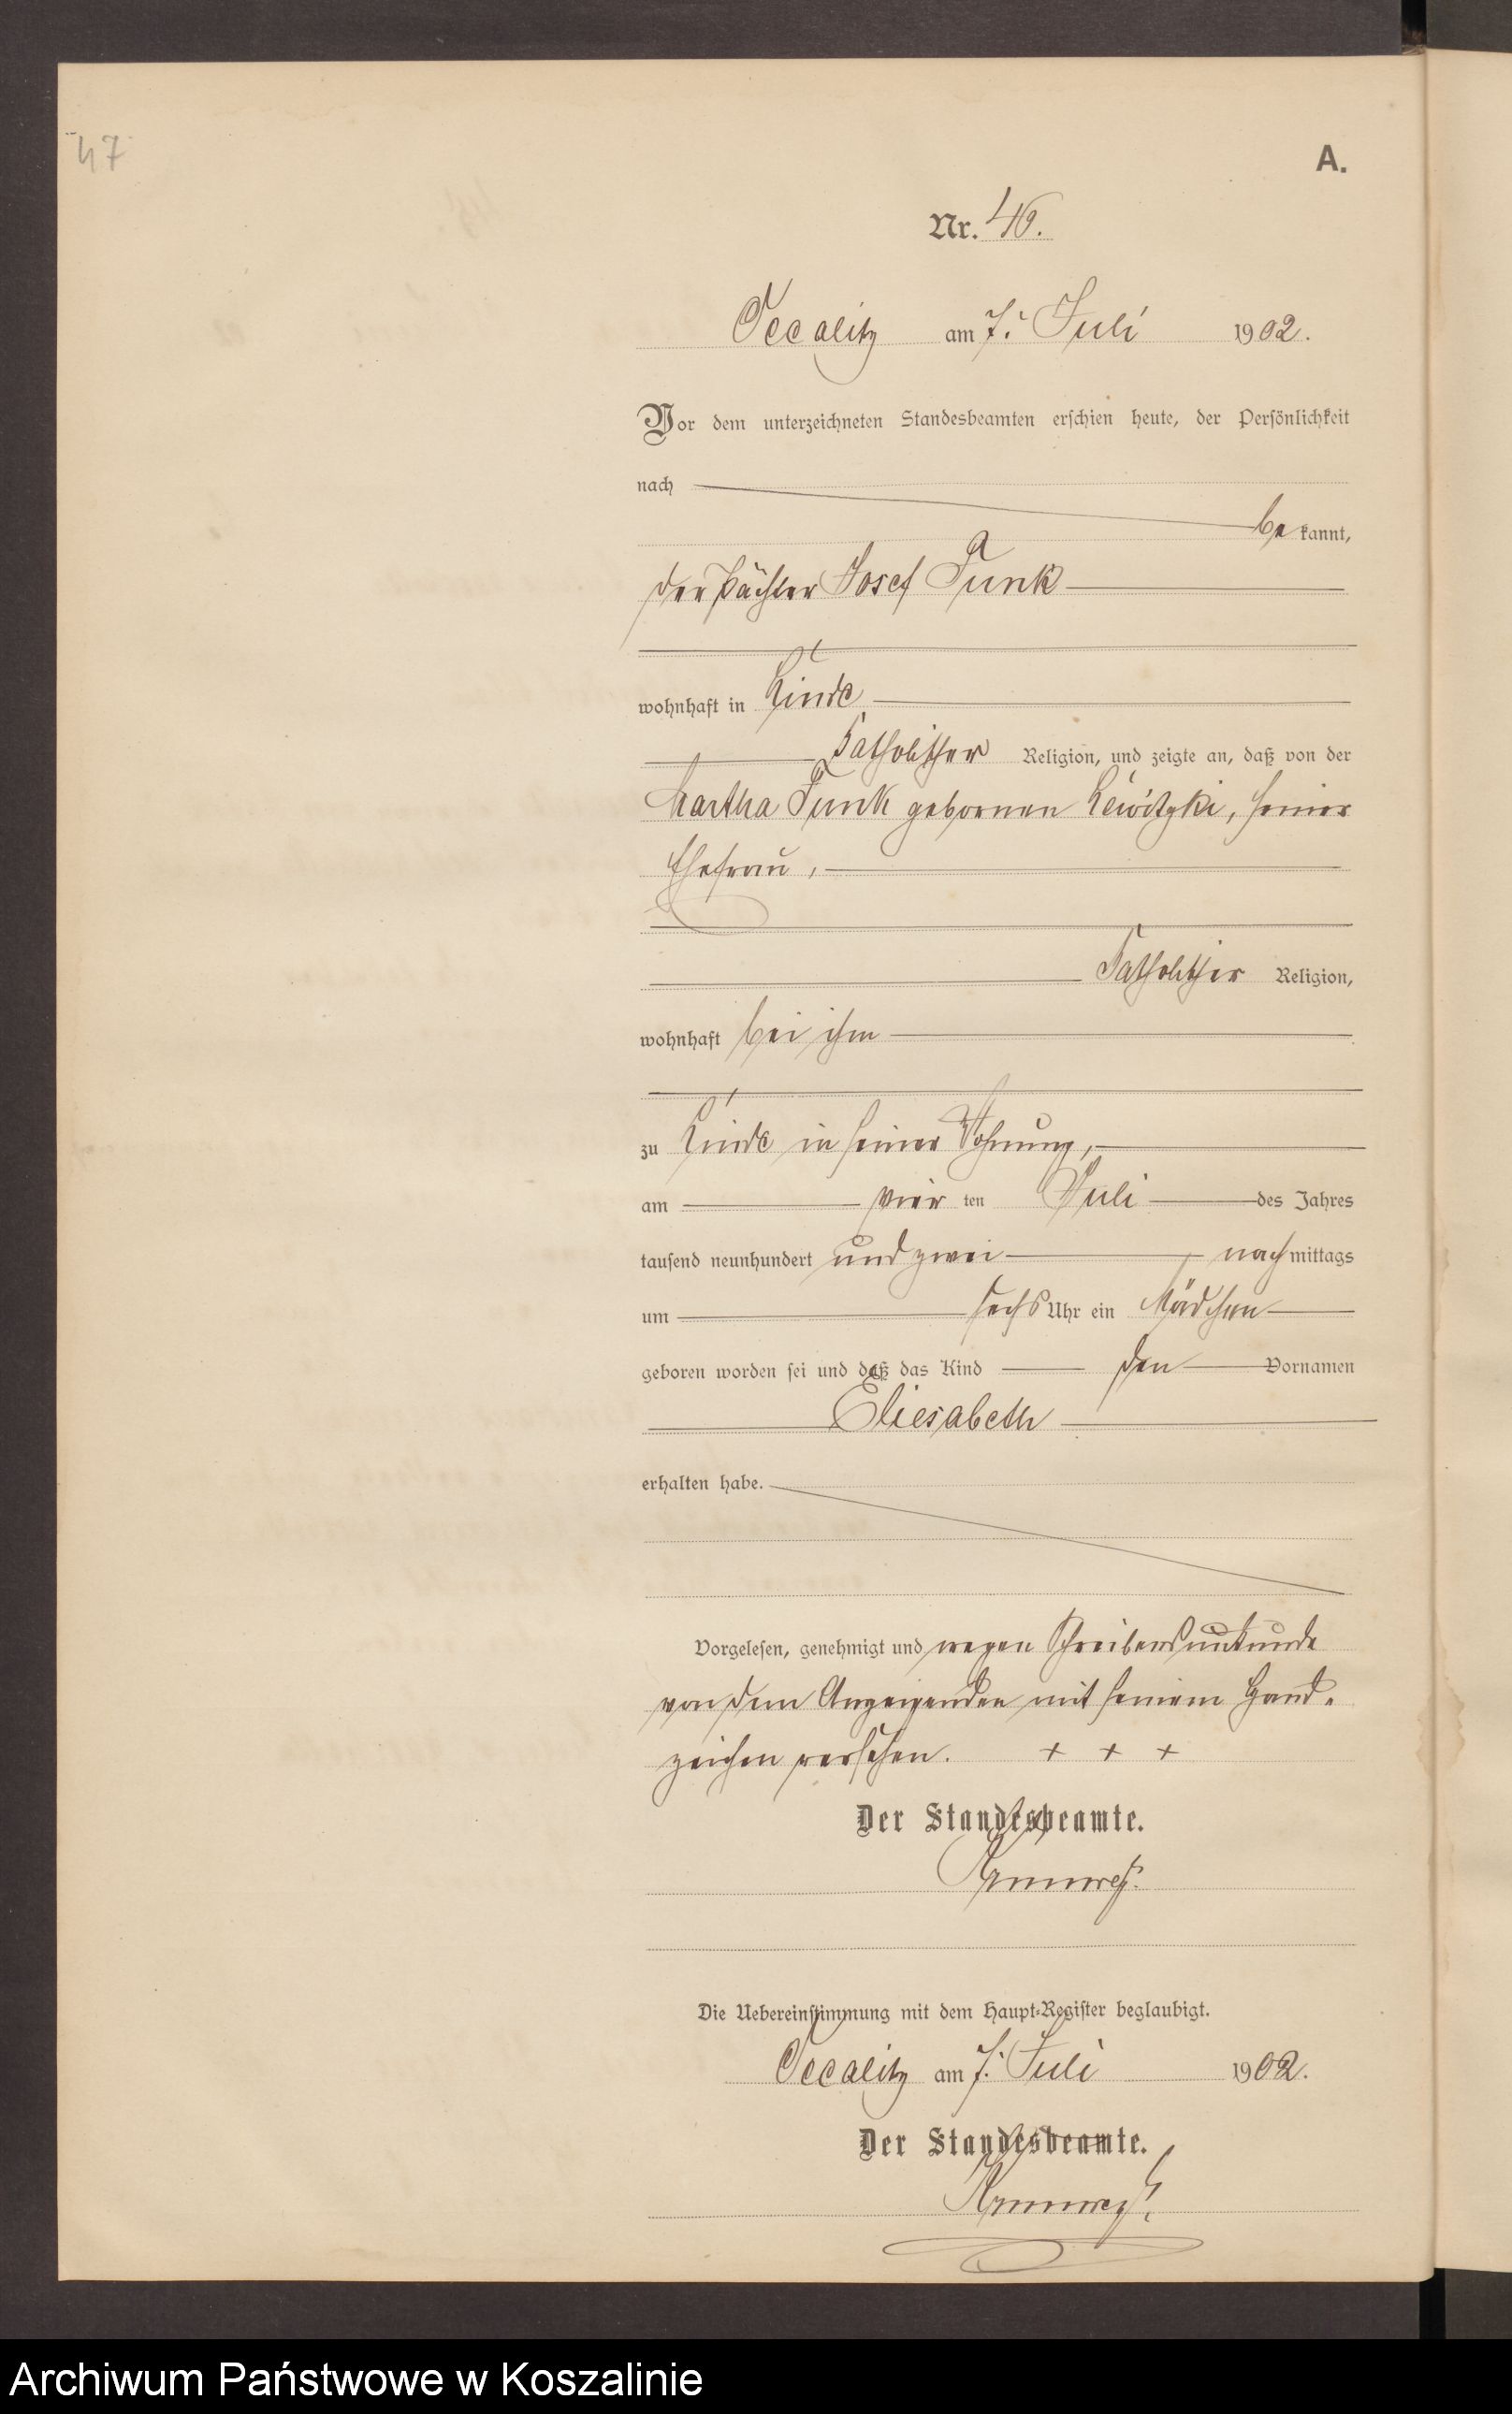 47
A.
Nr. 46.
Occalitz am 7. Juli 1902.
Vor dem unterzeichneten Standesbeamten erschien heute, der Persönlichkeit
nach
be kannt,
der Pächter Josef Funk
wohnhaft in Linde
katholischer Religion, und zeigte an, daß von der
Martha Funk gebornen Lewitzki, seiner
Ehefrau,
katholischer Religion,
wohnhaft bei ihm
zu Linde in seiner Wohnung,
am vier ten Juli des Jahres
tausend neunhundert und zwei, nach mittags
um sechs Uhr ein Mädchen
geboren worden sei und daß das Kind den Vornamen
Eliesabeth
erhalten habe.
Vorgelesen, genehmigt und wegen Schreibensunkunde
von dem Anzeigenden mit seinem Hand-
zeichen versehen. + + +
Der Standesbeamte.
Die Uebereinstimmung mit dem Haupt-Register beglaubigt.
Occalitz am 7. Juli 1902.
Der Standesbeamte.
Archiwum Państwowe w Koszalinie